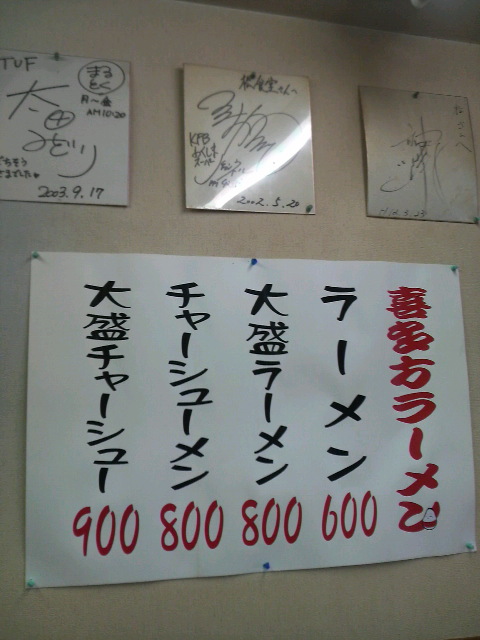 TUF
まるとく
月～金
AM10:20
太田
みどり
2003.9.17
さんへ
KFB
ふくしま
スーパー
2002.5.20
喜多方ラーメン
ラーメン 600
大盛ラーメン 800
チャーシューメン 800
大盛チャーシュー 900